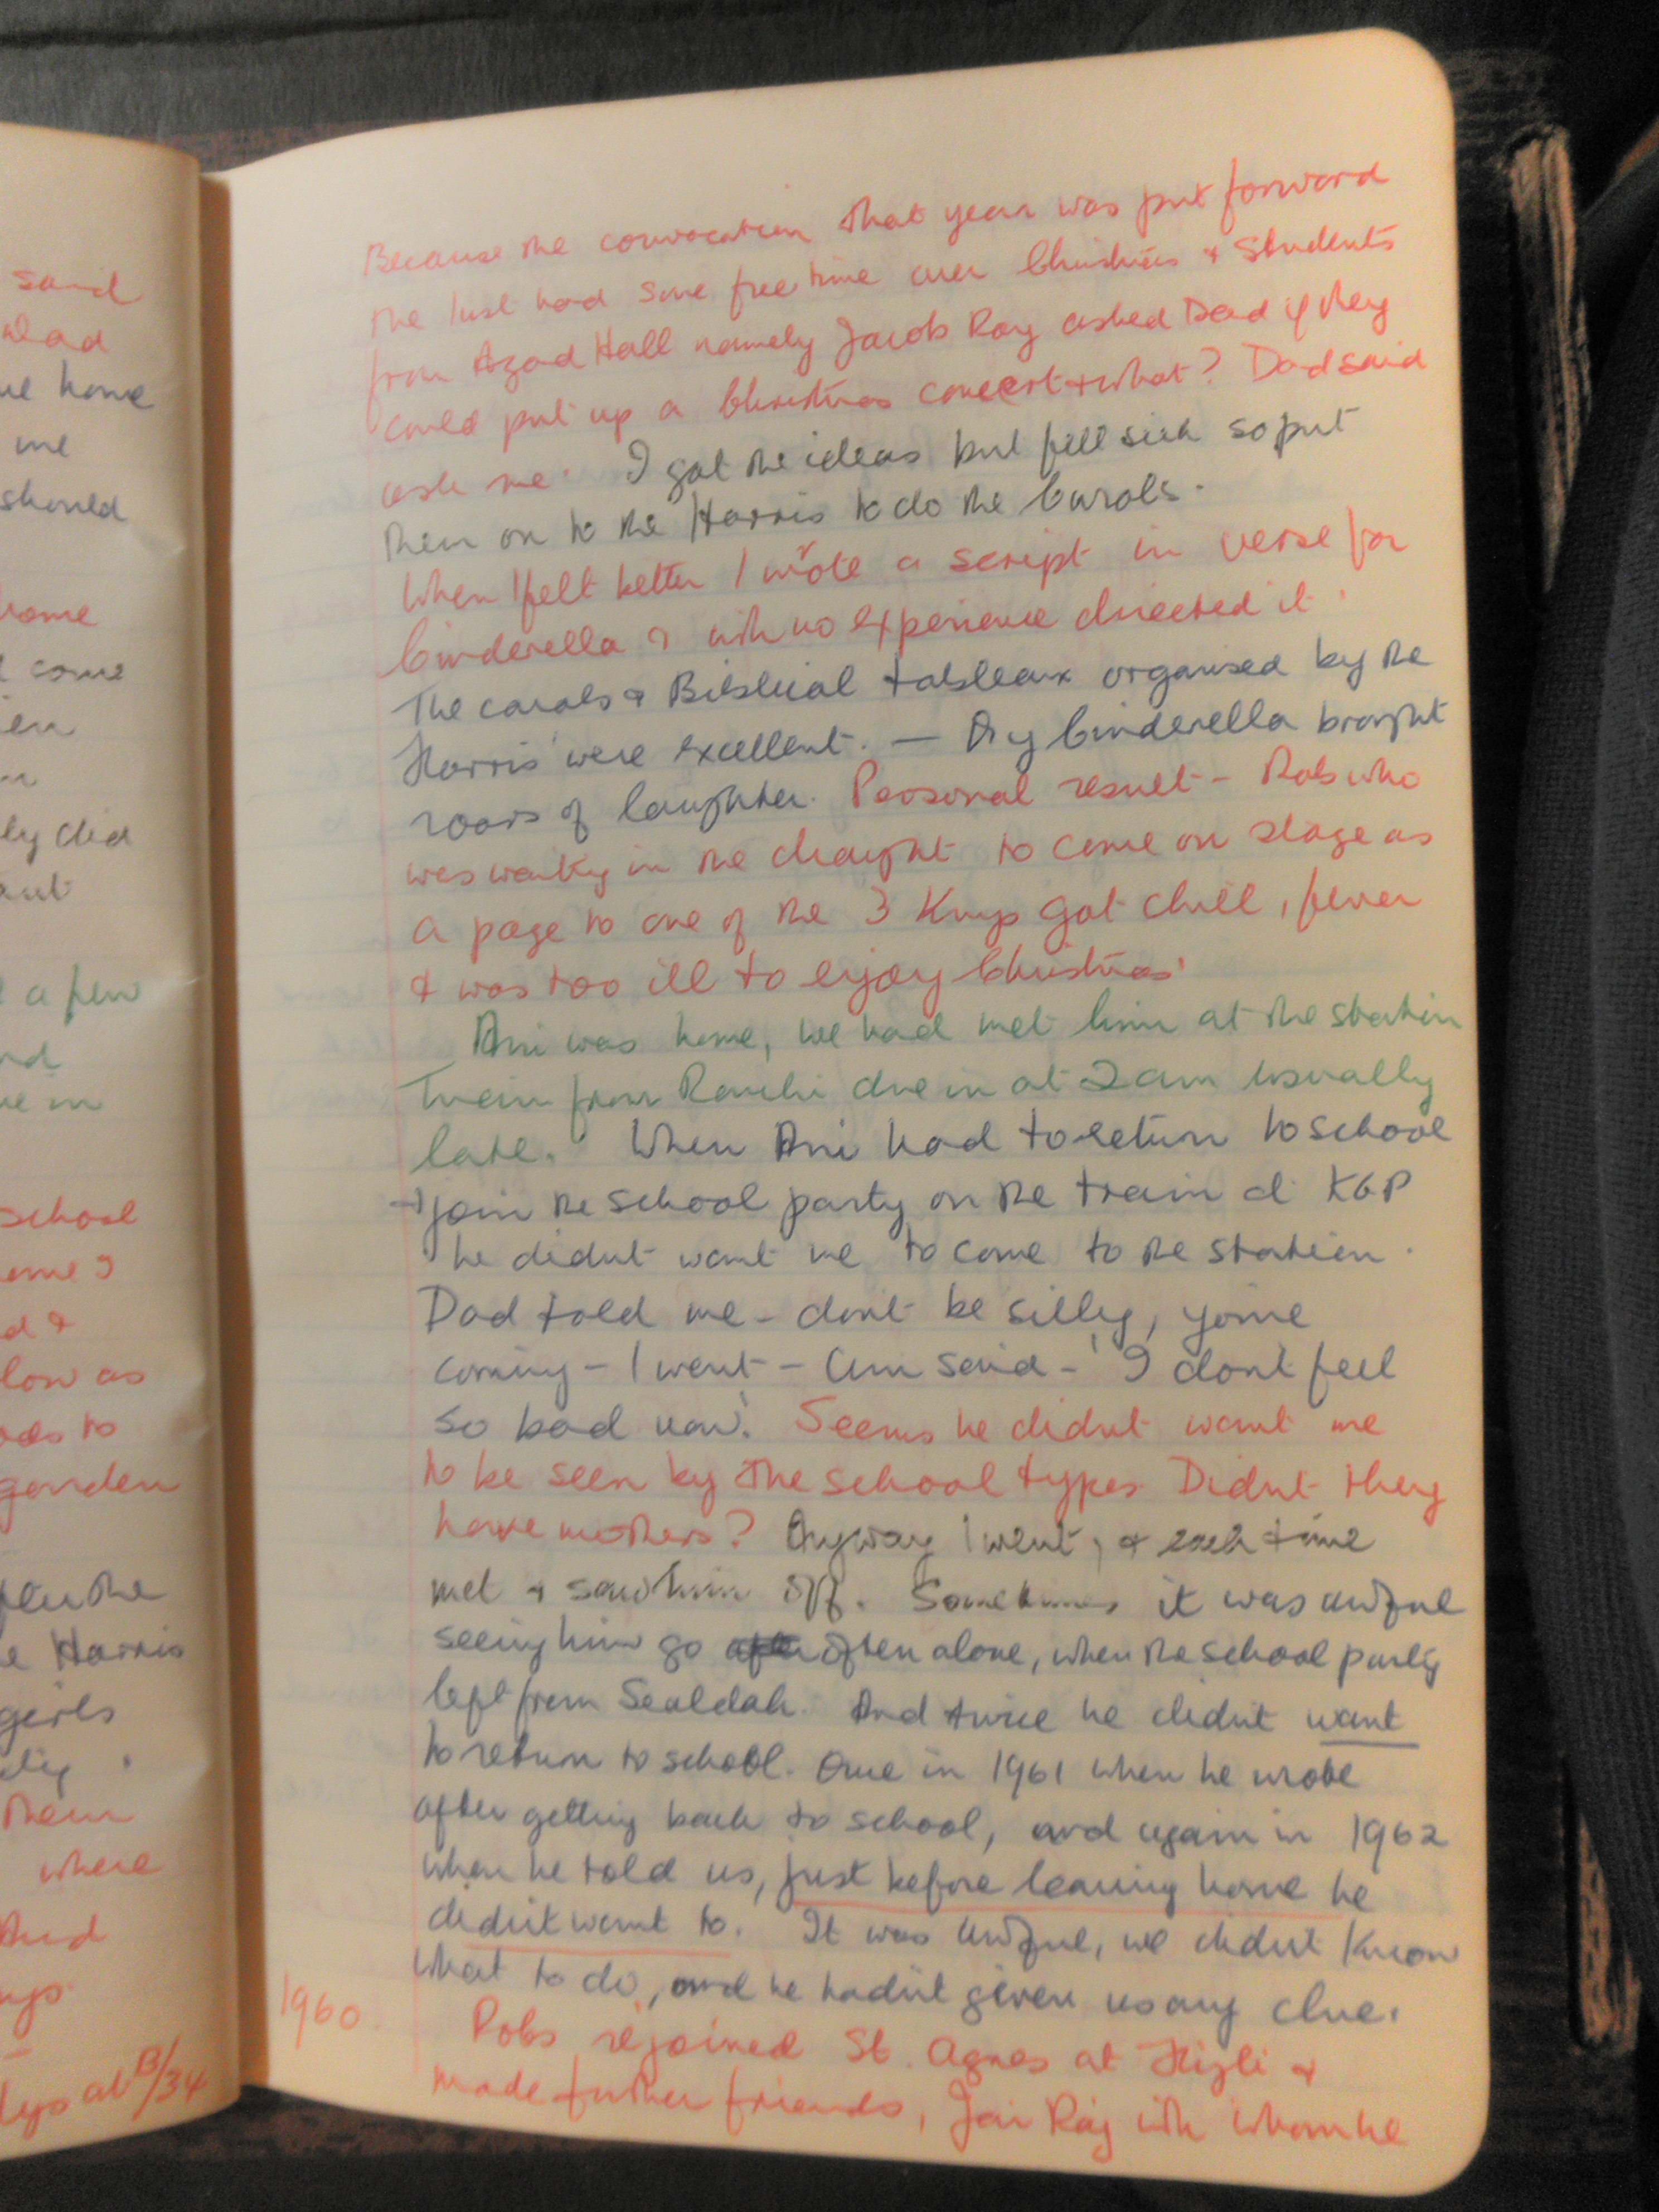 said
home
me
should
home
come
ly did
a few
school
low as
to
garden
Harris
girls
them
where
And
at B/34
Because the convocation that year was put forward
the Inst had some free time over Christmas & students
from Azad Hall namely Jacob Roy asked Dad if they
could put up a Christmas concert & what? Dad said
ask me. I got the ideas but fell sick so put
them on to the Harris to do the Carols.
When I felt better I wrote a script in verse for
Cinderella & with no experience directed it.
The carols & Biblical tableaux organised by the
Harris were excellent. — My Cinderella brought
roars of laughter. Personal result - Robs who
was waiting in the draught to come on stage as
a page to one of the 3 Kings got chill, fever
& was too ill to enjoy Christmas.
Ani was home, we had met him at the station
Train from Ranchi due in at 2 am usually
late. When Ani had to return to school
& join the school party on the train at KGP
he didnt want me to come to the station.
Dad told me - dont be silly, you're
coming - I went - Ani said - 'I dont feel
so bad now'. Seems he didnt want me
to be seen by the school types. Didnt they
have mothers? Anyway I went, & each time
met & saw him off. Sometimes it was awful
seeing him go often alone, when the school party
left from Sealdah. And twice he didnt want
to return to school. Once in 1961 when he wrote
after getting back to school, and again in 1962
when he told us, just before leaving home he
didnt want to. It was awful, we didnt know
what to do, and he hadnt given us any clue.
1960. Robs rejoined St. Agnes at Hijli &
made further friends, Jai Raj with whom he